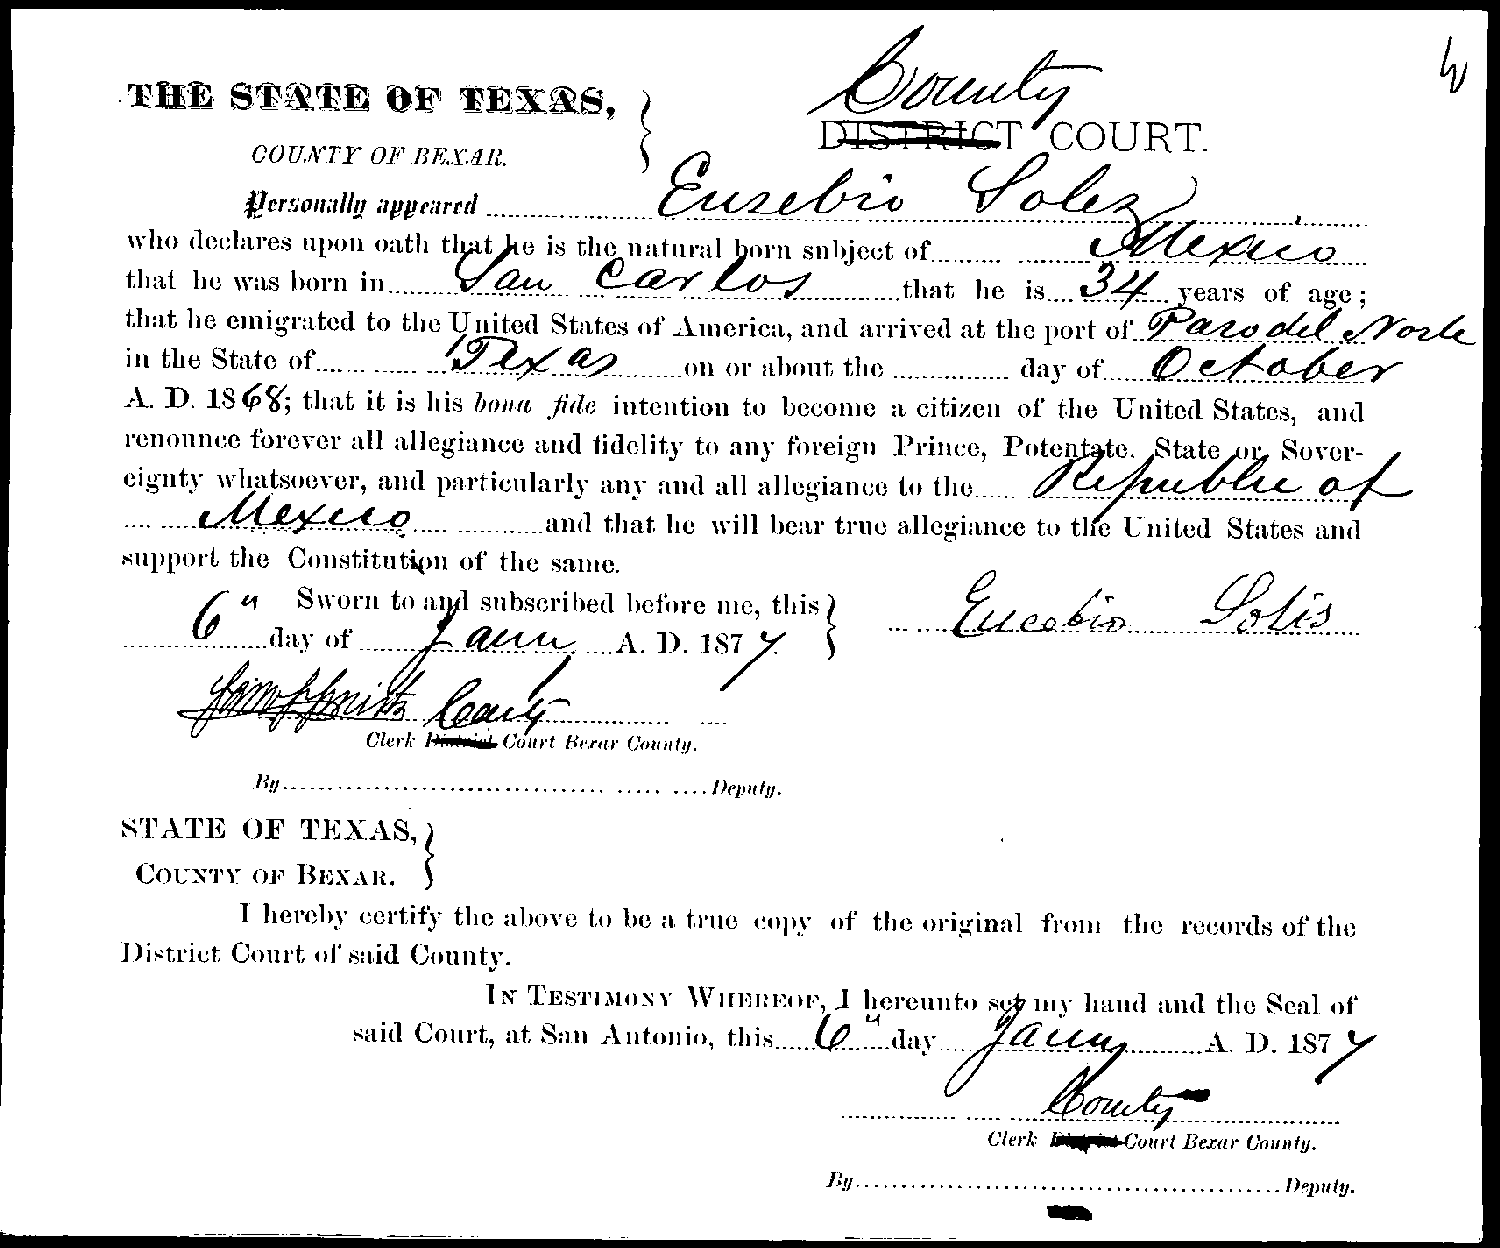 County
THE STATE OF TEXAS,
DISTRICT COURT.
COUNTY OF BEXAR.
Personally appeared Eusebio Solez
who declares upon oath that he is the natural born subject of Mexico
that he was born in San Carlos that he is 34 years of age;
that he emigrated to the United States of America, and arrived at the port of Paso del Norte
in the State of Texas on or about the day of October
A. D. 1868; that it is his bona fide intention to become a citizen of the United States, and
renounce forever all allegiance and fidelity to any foreign Prince, Potentate, State or Sover-
eignty whatsoever, and particularly any and all allegiance to the Republic of
Mexico and that he will bear true allegiance to the United States and
support the Constitution of the same.
Sworn to and subscribed before me, this
6" day of Jany A. D. 1877
Eucebio Solis
County
Clerk District Court Bexar County.
By Deputy.
STATE OF TEXAS,
COUNTY OF BEXAR.
I hereby certify the above to be a true copy of the original from the records of the
District Court of said County.
IN TESTIMONY WHEREOF, I hereunto set my hand and the Seal of
said Court, at San Antonio, this 6" day Jany A. D. 1877
County
Clerk District Court Bexar County.
By Deputy.